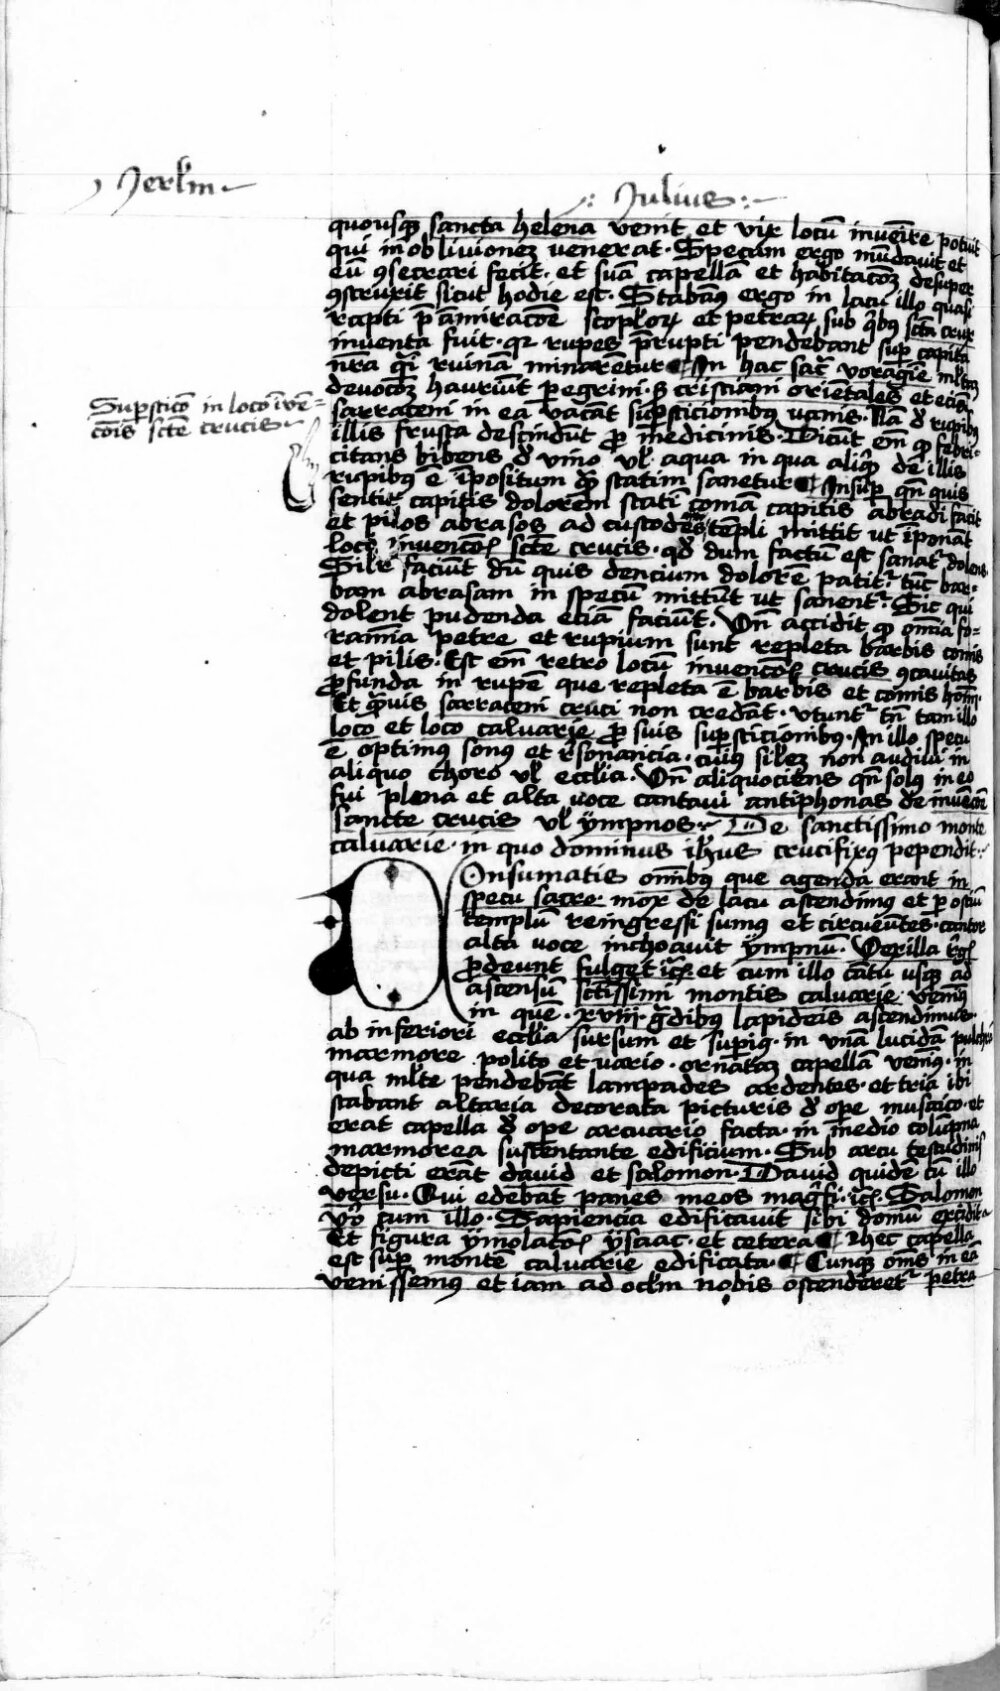 Jerlm
Julius
quousqꝫ sancta helena venit et vix locū inueīre potuit
qui in obliuionez venerat. Specum ergo mūdauit et
eū ꝯsecrari fecit. et suā capellā et habitacōꝫ desuper
ꝯstruxit sicut hodie est. Stabamꝰ ergo in lacu illo quasi
rapti p̄ amiracōe scoploꝝ et petraꝝ sub qͥbꝰ sctā crux
inuenta fuit. qꝛ rupes p̄rupti pendebant suꝑ capita
nr̄a qͣi ruinā minarentur ¶ In hac sac̄ voragīe ml̄tā
deuocōꝫ hauriūt peregrini. sꝫ cristiani orientales et eciā
sarraceni in ea vacāt suꝑsticionibꝰ vanis. Nā de rupibꝰ
illis frusta descindūt ꝓ medicinis. Dicūt em̄ ꝙ febri-
citans bibens de vino vl̄ aqua in qua aliqͥd de illis
rupibꝰ ē īpositum qͩ statim sanetur ¶ Insuꝑ qn̄ quis
sentit capitis dolorem stati comā capitis abradi facit
et pilos abrasos ad custodes tēpli mittit ut īponat
loco inuencōis scte crucis. qd̄ dum factū est sanatᷣ dolens.
Silr̄ faciūt dū quis dencium dolorē patitᷣ. tūc bar-
bam abrasam in specū mittūt ut sanentᷣ. Sic qui
dolent pudenda eciā faciūt. Vn̄ accidit ꝙ omīa fo-
ramīa petre et rupium sunt repleta barbis comis
et pilis. Est em̄ retro locū inuencōis crucis ꝯcauitas
ꝓfunda in rupē que repleta ē barbis et comis hoīm.
Et qͣuis sarraceni cruci non credāt. vtuntᷣ tn̄ tam illo
loco et loco caluarie ꝓ suis suꝑsticionibꝰ. In illo specu
ē optimꝰ sonus et rͤsonancia. cuiꝰ sil̄ez non audiui in
aliquo choro vl̄ eccl̄ia. Vn̄ aliquociens qn̄ solꝰ in eo
fui plena et alta voce cantaui antiphonas de inuēcōe
sancte crucis vl̄ ÿmpnos. De sanctissimo monte
caluarie. in quo dominus ihūs crucifixꝰ pependit.
Onsumatis omībꝰ que agenda erant in
specu sacro. mox de lacu ascendimꝰ et ꝑ ostiū
templū reingressi sumꝰ et circueūtes. cantor
alta voce inchoauit ÿmpnū. Vexilla rͤgis
ꝓdeunt fulget ic̄. et cum illo cātu usqꝫ ad
ascensū sctissimi montis caluarie venimꝰ
in quē. xviij gͣdibꝰ lapideis ascendimus.
ab inferiori eccl̄ia sursum et suꝑiꝰ. in vnā lucidā pulchrā
marmore polito et vario. ornatāꝫ capellā venimꝰ. in
qua ml̄te pendebāt lampades ardentes. et tria ibi
stabant altaria decorata picturis de ope musaico. et
erat capella de ope arcuario facta. in medio colūpna
marmorea sustentante edificium. Sub arcu testudinis
depicti erāt dauid et salomon. Dauid quidē cū illo
versu. Qui edebat panes meos magͥfi. ic̄. Salomon
vͦo cum illo. Sapiencia edificauit sibi domū excidit
Et figura ÿmolacōis ÿsaac. et cetera ¶ Hec capella
est suꝑ montē caluarie edificata. ¶ Cunqꝫ om̄s in eā
venissemꝰ et iam ad oclm nobis ostenderetᷣ petra
Suꝑsticō in loco īuē=
cōis scte crucis